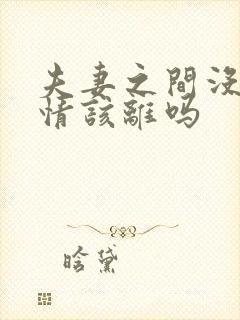 夫妻之間没
情該離吗
晗黛